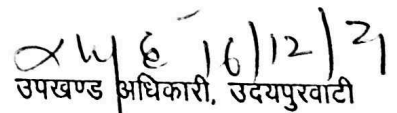 16/12/21
उपखण्ड अधिकारी, उदयपुरवाटी